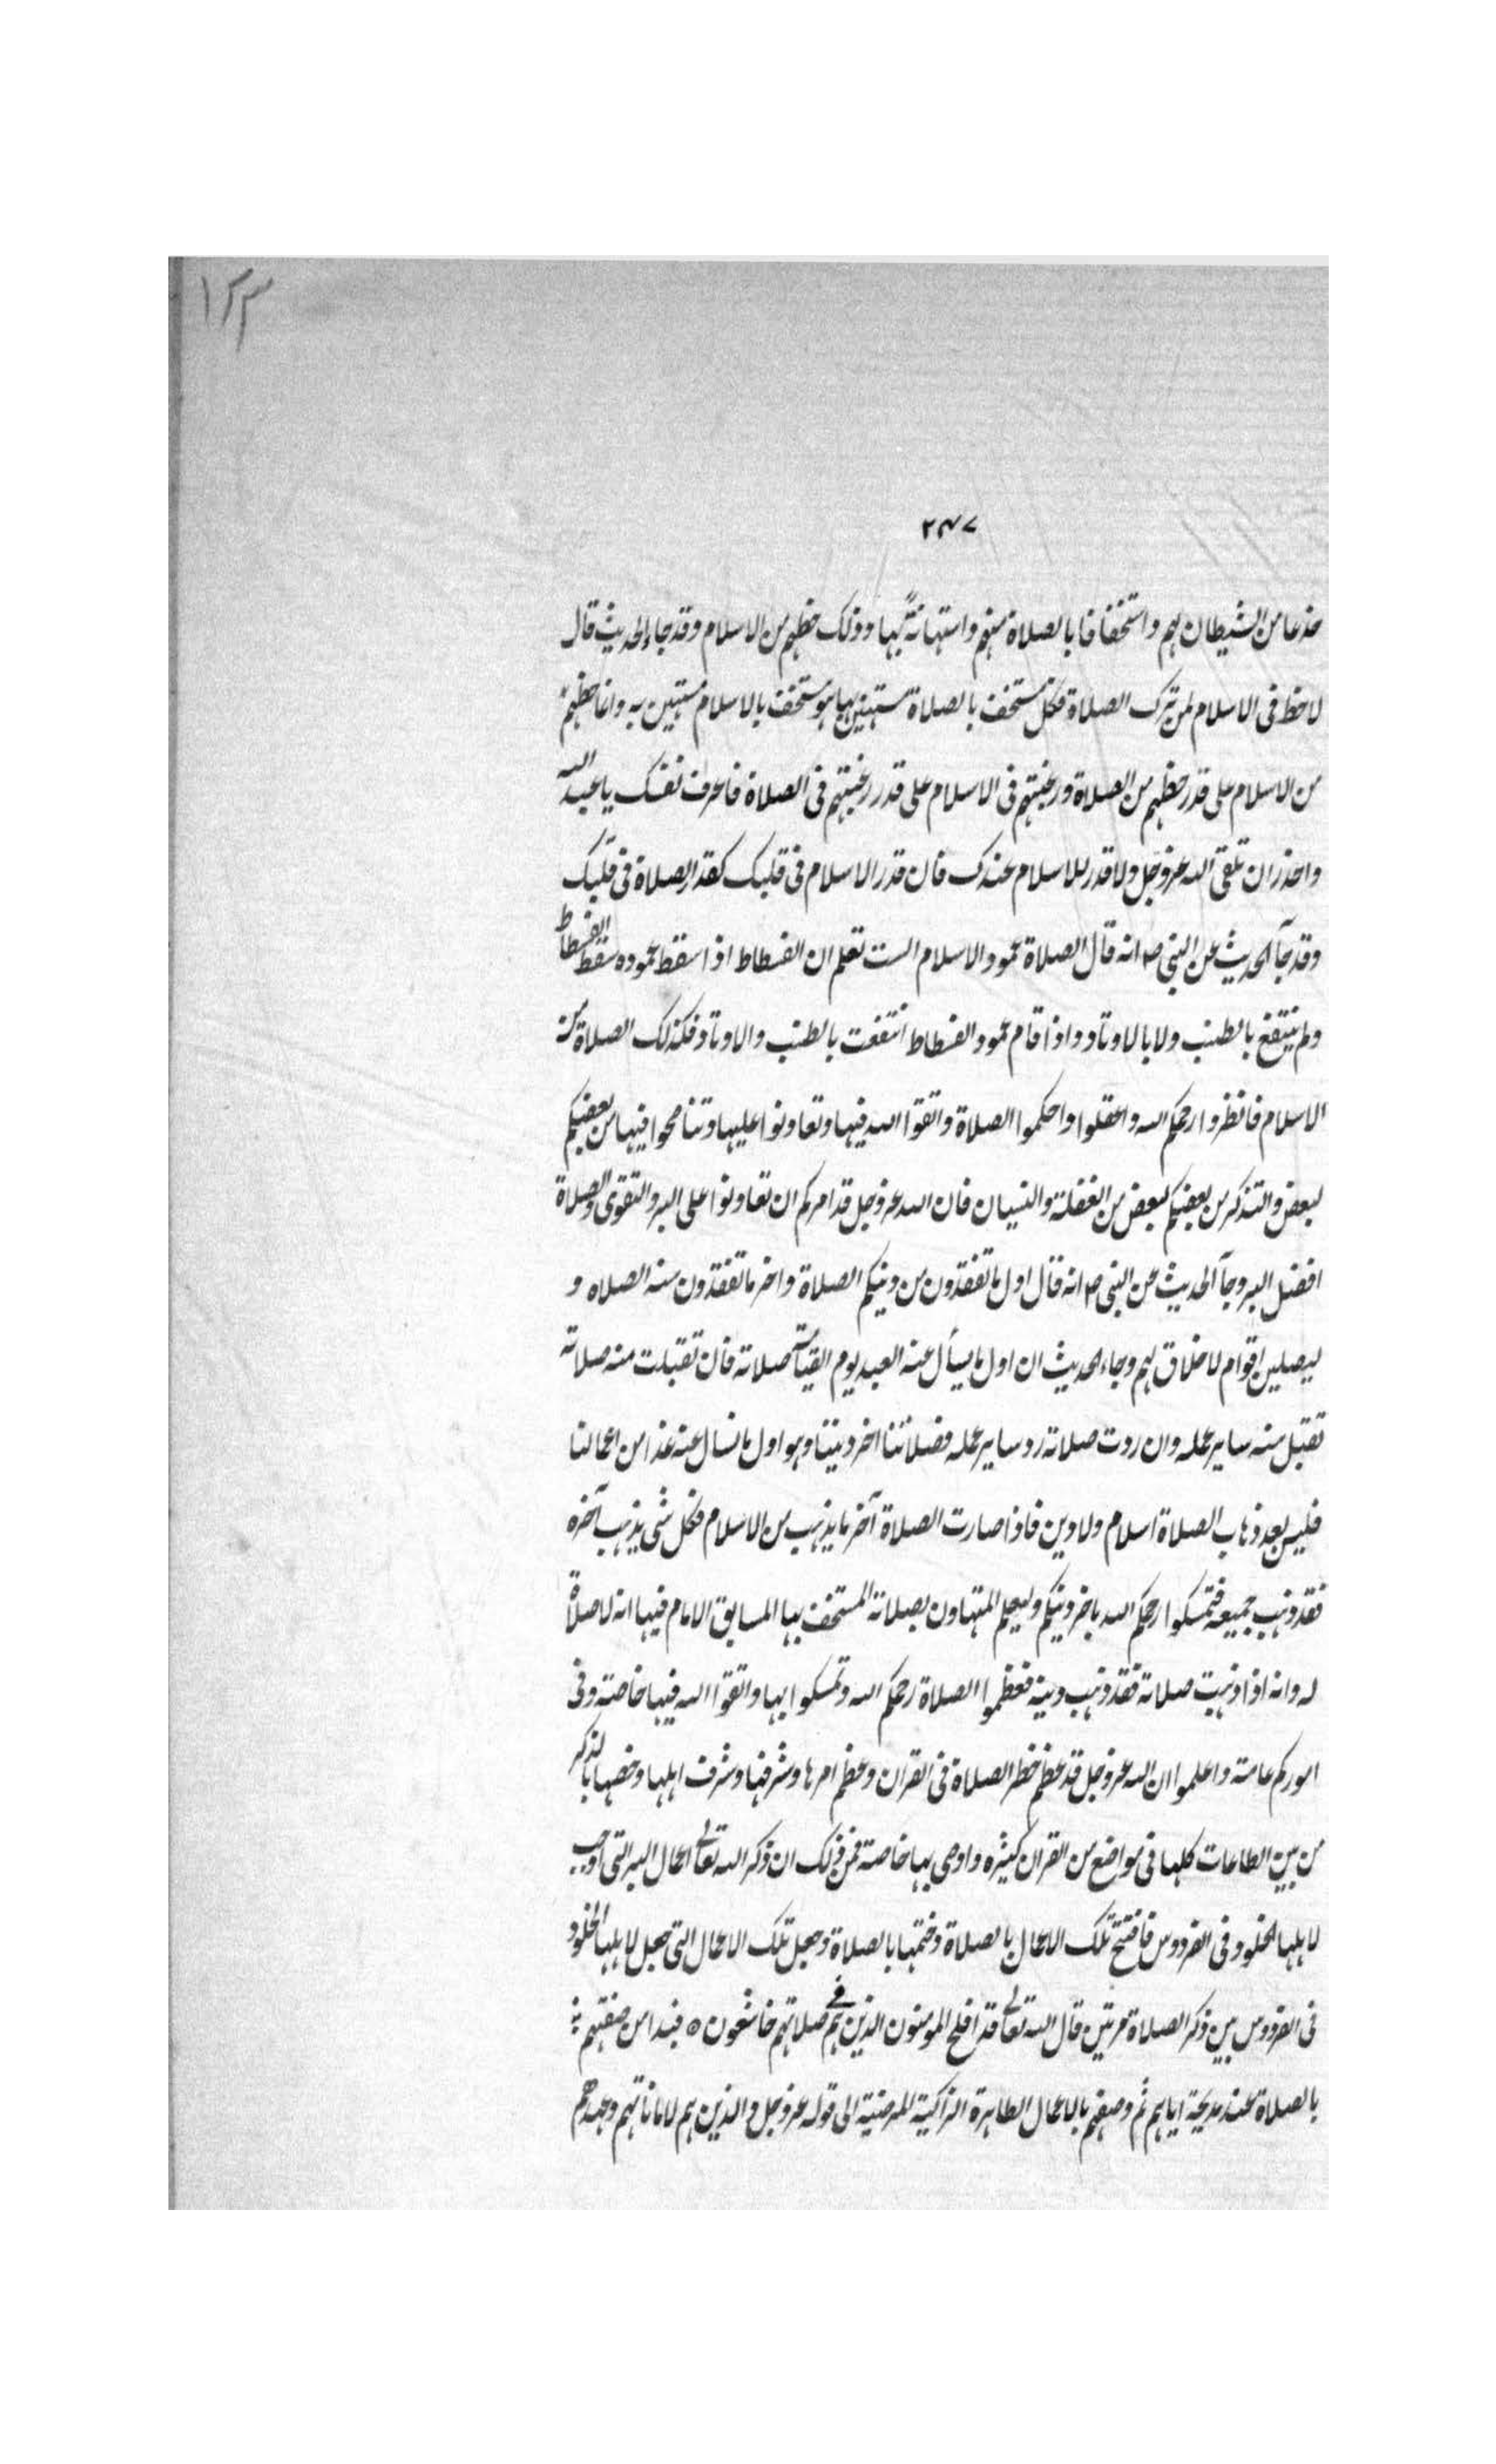 ١٢٣
٢٤٧
خدعا من الشيطان لهم واستخفافا بالصلاة منهم واستهانةً بها وذلك حظهم من الاسلام وقد جاء الحديث قال
لا حظ فى الاسلام لمن ترك الصلاة فكل مستخف بالصلاة مستهين بها هو مستخف بالاسلام مستهين به وانما حظهم
من الاسلام على قدر حظهم من الصلاة ورغبتهم فى الاسلام على قدر رغبتهم فى الصلاة فاعرف نفسك يا عبد الله
واحذر ان تلقى الله عز وجل ولا قدر للاسلام عندك فان قدر الاسلام فى قلبك كقدر الصلاة فى قلبك
وقد جآ الحديث عن النبى ص انه قال الصلاة عمود الاسلام الست تعلم ان الفسطاط اذا سقط عموده سقط الفسطاط
ولم ينتفع بالطنب ولا بالاوتاد واذا قام عمود الفسطاط انتفعت بالطنب والاوتاد فكذلك الصلاة من
الاسلام فانظروا رحمكم الله واعقلوا واحكموا الصلاة واتقوا الله فيها وتعاونوا عليها وتناصحوا فيها من بعضكم
لبعض والتذكر من بعضكم لبعض من الغفلة والنسيان فان الله عز وجل قد امركم ان تعاونوا على البر والتقوى والصلاة
افضل البر وجآ الحديث عن النبى ص انه قال اول ما تفقدون من دينكم الصلاة واخر ما تفقدون منه الصلاه و
ليصلين اقوام لا خلاق لهم وجاء الحديث ان اول ما يسأل عنه العبد يوم القيامة صلاته فان تقبلت منه صلاته
تقبل منه ساير عمله وان ردت صلاته رد ساير عمله فصلاتنا اخر ديننا وهو اول ما نسال عنه غدا من اعمالنا
فليس بعد ذهاب الصلاة اسلام ولا دين فاذا صارت الصلاة آخر ما يذهب من الاسلام فكل شى يذهب آخره
فقد ذهب جميعه فتمسكوا رحمكم الله باخر دينكم وليعلم المتهاون بصلاته المستخف بها المسابق الامام فيها انه لا صلاة
له وانه اذا ذهبت صلاته فقد ذهب دينه فعظموا الصلاة رحمكم الله وتمسكوا بها واتقوا الله فيها خاصة وفى
اموركم عامة واعلموا ان الله عز وجل قد عظم خطر الصلاة فى القران وعظم امرها وشرفها وشرف اهلها وخصها بالذكر
من بين الطاعات كلها فى مواضع من القران كثيره واوصى بها خاصة فمن ذلك ان ذكر الله تعالى اعمال البر التى اوجب
لاهلها الخلود فى الفردوس فافتتح تلك الاعمال بالصلاة وختمها بالصلاة وجعل تلك الاعمال التى جعل لاهلها الخلود
فى الفردوس بين ذكر الصلاة مرتين قال الله تعالى قد افلح المومنون الذين هم فى صلاتهم خاشعون ٥ فبدا من صفتهم
بالصلاة عند مديحة اياهم ثم وصفهم بالاعمال الطاهرة الزاكية المرضية الى قوله عز وجل والذين هم لاماناتهم وعهدهم